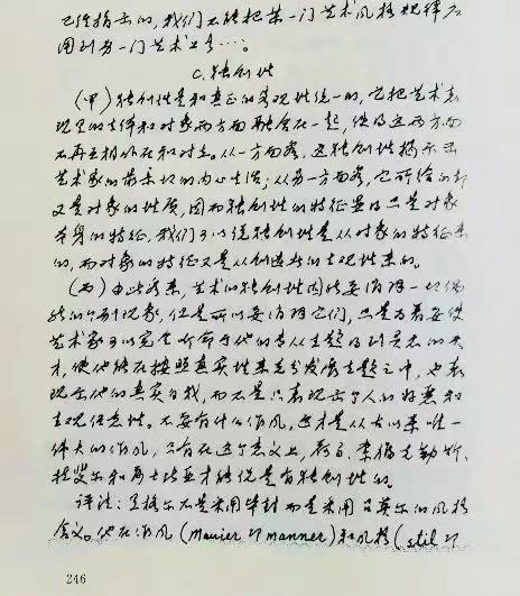 已经指出的，我们不能把某一门艺术风格规律应
用到另一门艺术上去…。
c.独创性
（甲）独创性是和真正的客观性统一的，它把艺术表
现里的主体和对象两方面融合在一起，使得这两方面
不再互相外在和对立。从一方面看，这独创性揭示出
艺术家的最亲切的内心生活；从另一方面看，它所给的却
又是对象的性质，因而独创性的特征显得只是对象
本身的特征，我们可以说独创性是从对象的特征来
的，而对象的特征又是从创造者的主观性来的。
（丙）由此看来，艺术的独创性固然要消除一切偶
然的个别现象，但是所以要消除它们，只是为着要使
艺术家可以完全听命于他的专从主题得到灵感的天
才，使他能在按照真实性来充分发挥主题之中，也表
现出他的真实自我，而不是只表现出个人的好恶和
主观任意性。不要有什么作风，这才是从古以来唯一
伟大的作风，只有在这个意义上，荷马、索福克勒斯、
拉斐尔和莎士比亚才能说是有独创性的。
评注：黑格尔不是采用 而是采用吕莫尔的风格
含义。他在作风（Manier 即 manner）和风格（stil 即
246